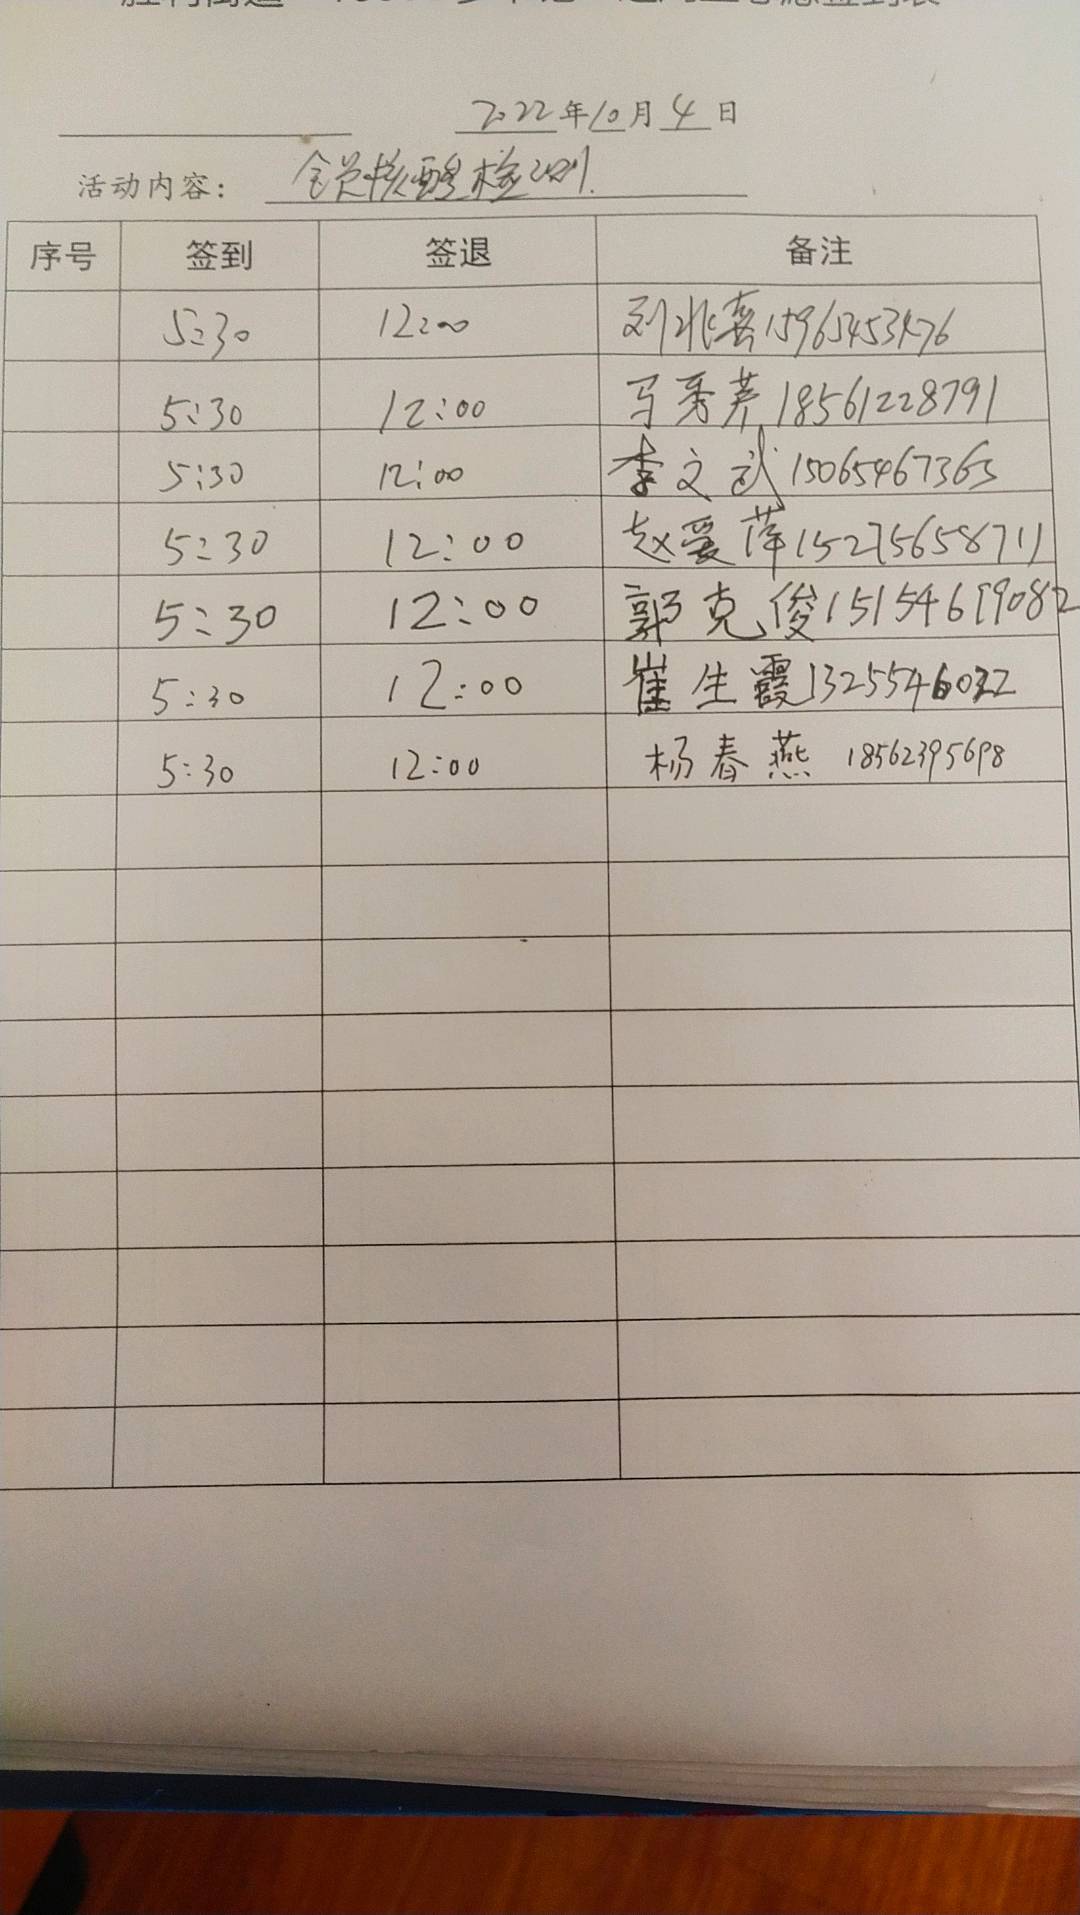 2022年10月4日
活动内容: 全员核酸检测.
序号 签到 签退 备注
5:30 12:00 刘兆喜15965453476
5:30 12:00 马秀荞18561228791
5:30 12:00 李文武15065467363
5:30 12:00 赵爱萍15275658711
5:30 12:00 郭克俊15154619082
5:30 12:00 崔生霞13255546022
5:30 12:00 杨春燕 18562395698